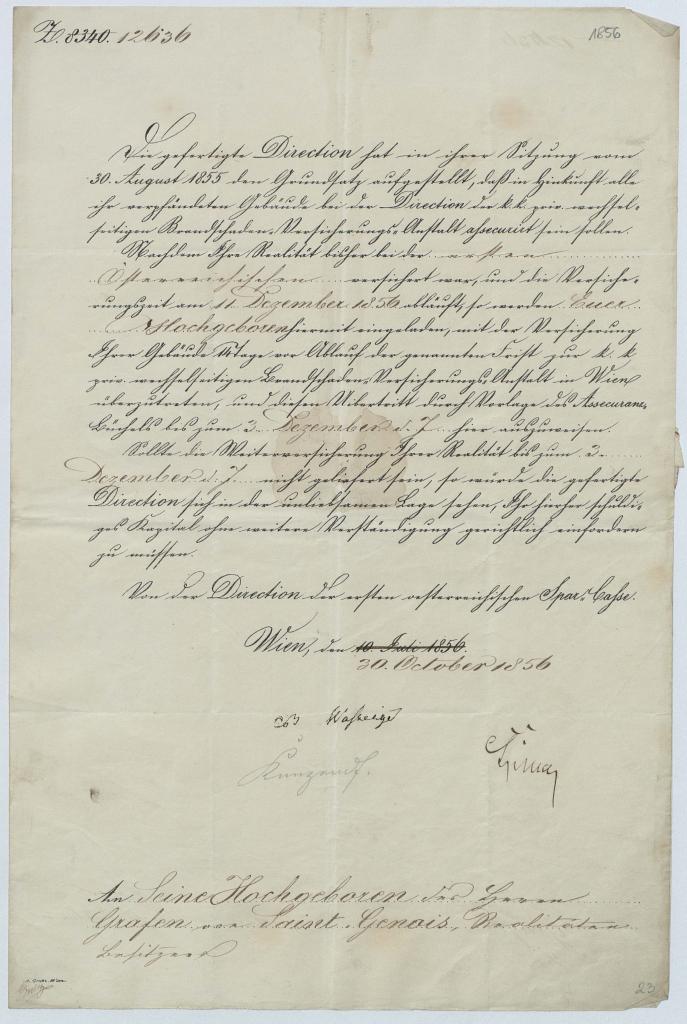 Z. 8340. 12636
1856
Die gefertigte Direction hat in ihrer Sitzung vom
30. August 1855 den Grundsatz aufgestellt, daß in Hinkunft alle
ihr verpfändeten Gebäude bei der Direction der k. k. priv. wechsel-
seitigen Brandschaden-Versicherungs-Anstalt assecurirt sein sollen.
Nachdem Ihre Realität bisher bei der ersten
Österreichischen versichert war, und die Versiche-
rungszeit am 11. Dezember 1856 abläuft, so werden Euer
Hochgeboren hiermit eingeladen, mit der Versicherung
Ihrer Gebäude 14 Tage vor Ablauf der genannten Frist zur k. k.
priv. wechselseitigen Brandschaden-Versicherungs-Anstalt in Wien
überzutreten, und diesen Uibertritt durch Vorlage des Assecuranz-
Büchels bis zum 3. Dezember d. J. hier auszuweisen.
Sollte die Weiterversicherung Ihrer Realität bis zum 3.
Dezember d. J. nicht geliefert sein, so würde die gefertigte
Direction sich in der unliebsamen Lage sehen, Ihr hierher schuldi-
ges Kapital ohne weitere Verständigung gerichtlich einfordern
zu müssen.
Von der Direction der ersten oesterreichischen Spar-Casse.
Wien, den 10. Juli 1856.
30. October 1856
An Seine Hochgeboren des Herrn
Grafen von Saint-Genois, Realitäten
besitzers
23